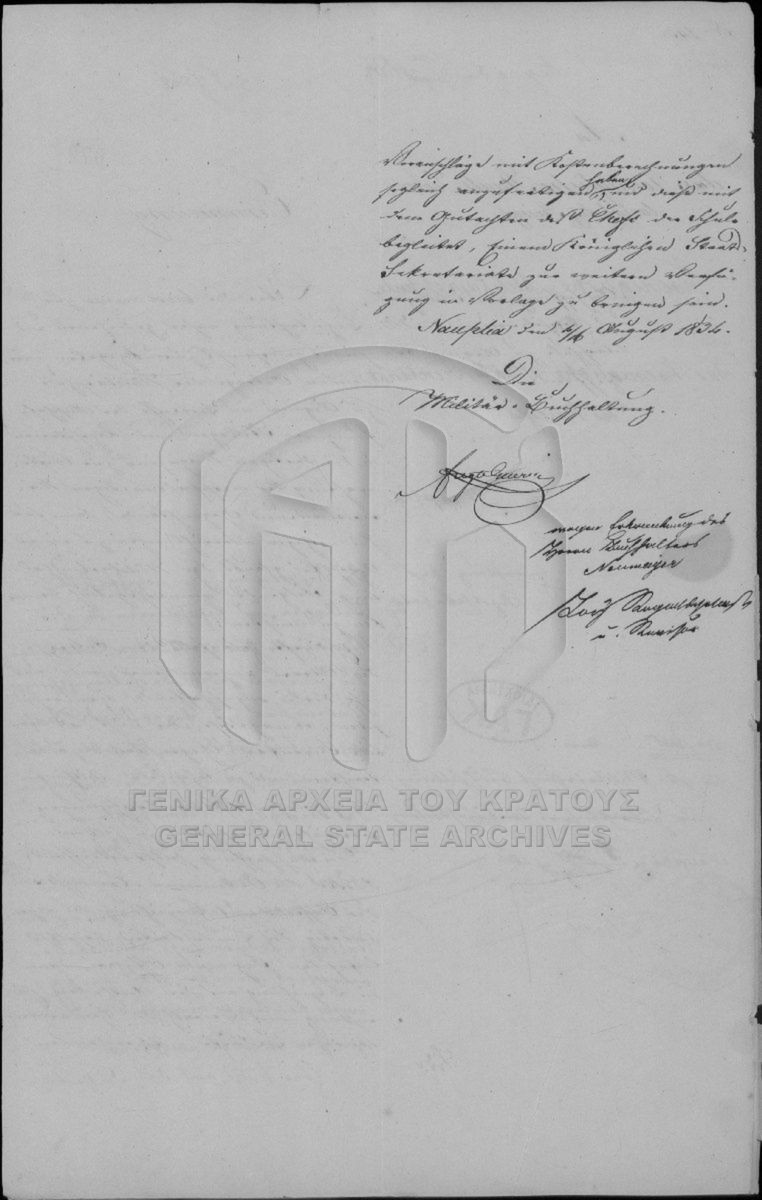 Voranschläge mit Kostenberechnungen
sogleich anzufertigen haben, und dieß mit
dem Gutachten deß Chefs der Schule
begleitet, Einem Königlichen Staats-
Sekretariate zur weitern Verfü-
gung in Vorlage zu bringen sein.
Nauplia den August 1834.
Die
Militär-Buchhaltung.
wegen Erkrankung des
Herrn Buchhalters
Neumayer
u. Revisor
ΓΕΝΙΚΑ ΑΡΧΕΙΑ ΤΟΥ ΚΡΑΤΟΥΣ
GENERAL STATE ARCHIVES